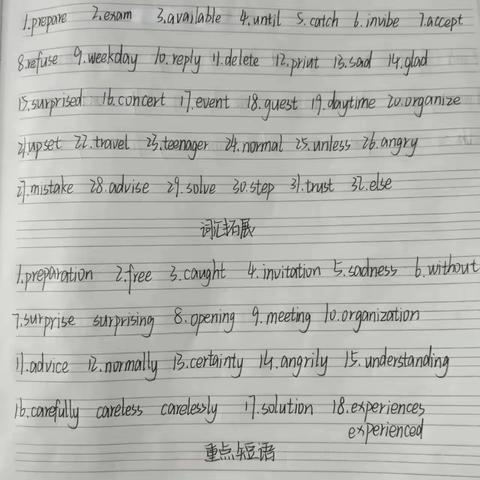 1.prepare 2.exam 3.available 4.until 5.catch 6.invibe 7.accept
8.refuse 9.weekday 10.reply 11.delete 12.print 13.sad 14.glad
15.surprised 16.concert 17.event 18.guest 19.daytime 20.organize
21.upset 22.travel 23.teenager 24.normal 25.unless 26.angry
27.mistake 28.advise 29.solve 30.step 31.trust 32.else
词汇拓展
1.preparation 2.free 3.caught 4.invitation 5.sadness 6.without
7.surprise surprising 8.opening 9.meeting 10.organization
11.advice 12.normally 13.certainty 14.angrily 15.understanding
16.carefully careless carelessly 17.solution 18.experiences
experienced
重点短语